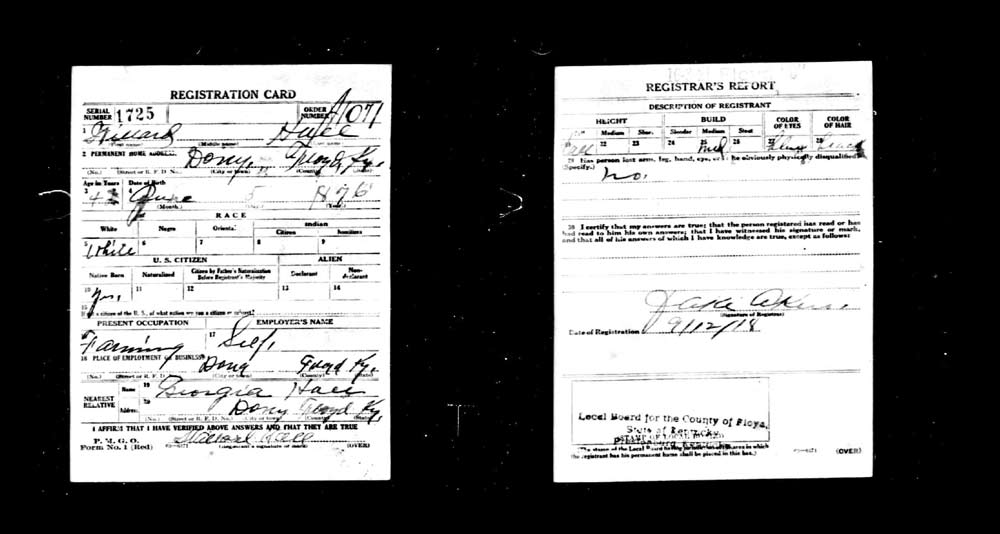 REGISTRATION CARD
SERIAL NUMBER 1725 ORDER NUMBER A1071
1 Hall
(First name) (Middle name) (Last name)
2 PERMANENT HOME ADDRESS: Dony, Floyd Ky.
(No.) (Street or R. F. D. No.) (City or town) (County) (State)
Age in Years Date of Birth
3 42 4 June 5 1876
(Month.) (Day.) (Year.)
RACE
White Negro Oriental Indian
Citizen Noncitizen
5 White 6 7 8 9
U. S. CITIZEN ALIEN
Native Born Naturalized Citizen by Father's Naturalization Before Registrant's Majority Declarant Non-declarant
10 Yes. 11 12 13 14
15 If not a citizen of the U. S., of what nation are you a citizen or subject?
PRESENT OCCUPATION EMPLOYER'S NAME
16 Farming 17 Self,
18 PLACE OF EMPLOYMENT OR BUSINESS:
Dony Floyd Ky.
(No.) (Street or R. F. D. No.) (City or town) (County) (State)
NEAREST RELATIVE Name 19 Georgia Hall
Address 20 Dony Floyd Ky.
(No.) (Street or R. F. D. No.) (City or town) (County) (State)
I AFFIRM THAT I HAVE VERIFIED ABOVE ANSWERS AND THAT THEY ARE TRUE
P. M. G. O.
Form No. 1 (Red) (Registrant's signature or mark) (OVER)
REGISTRAR'S REPORT
DESCRIPTION OF REGISTRANT
HEIGHT BUILD COLOR OF EYES COLOR OF HAIR
Medium Short Slender Medium Stout
22 23 24 25 med 26 27 28
29 Has person lost arm, leg, hand, eye, or is he obviously physically disqualified?
(Specify.) no.
30 I certify that my answers are true; that the person registered has read or has had read to him his own answers; that I have witnessed his signature or mark, and that all of his answers of which I have knowledge are true, except as follows:
Jake Akers.
(Signature of Registrar)
Date of Registration 9/12/18
Local Board for the County of Floyd,
State of Kentucky
(STAMP OF LOCAL BOARD)
(The stamp of the Local Board having jurisdiction of the area in which the registrant has his permanent home shall be placed in this box.)
(OVER)